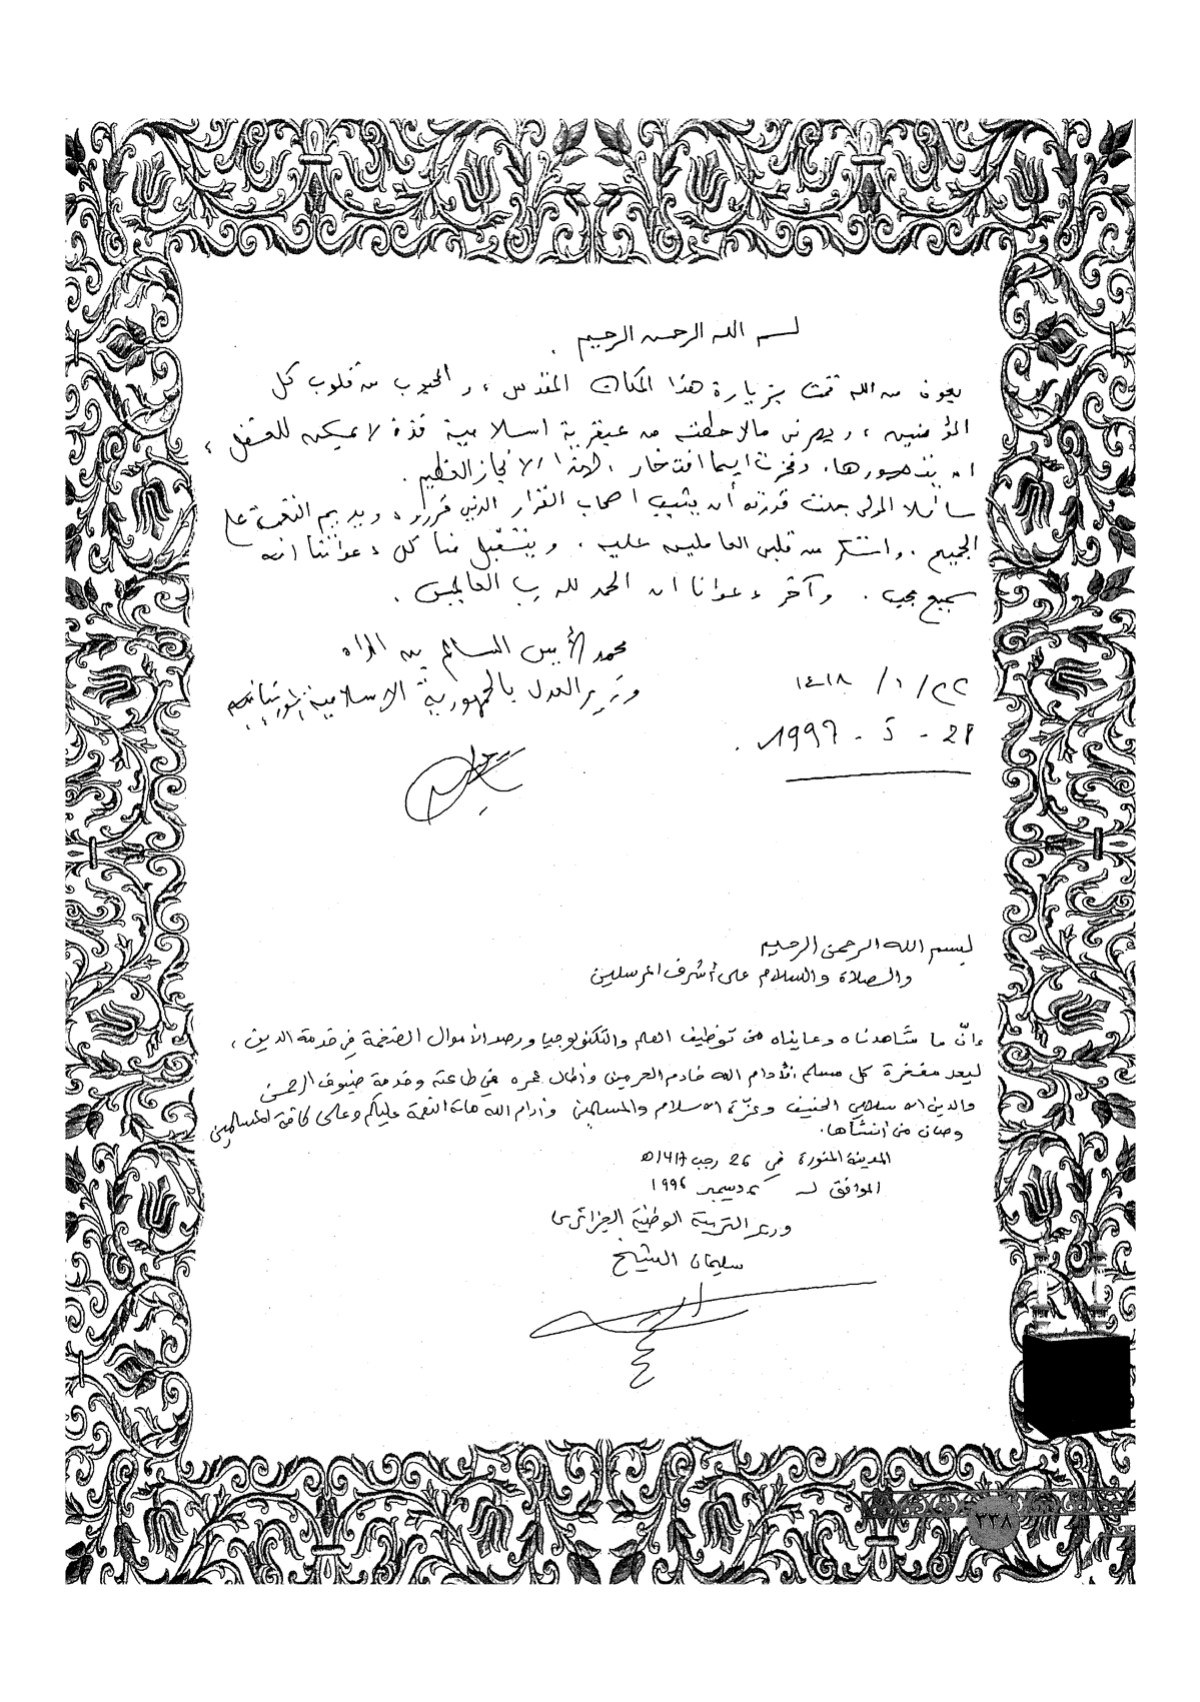 بسم الله الرحمن الرحيم .
بعون من الله قمت بزيارة هذا المكان المقدس ، والمحبوب من قلوب كل
المؤمنين ، وبهرني ما لاحظته من عبقرية اسلامية فذة لا يمكن للعقل ،
ان يتصورها، وفخرت ايما افتخار بهذا الانجاز العظيم .
سائلا المولى جلت قدرته أن يثيب اصحاب القرار الذين قرروه ، ويديم النعمة على
الجميع . واشكر من قلبي العاملين عليه . ويتقبل منا كل دعواتنا انه
سميع مجيب . وآخر دعوانا ان الحمد لله رب العالمين .
محمد الأمين السالم بن الداه
وزير العدل بالجمهورية الاسلامية الموريتانية
٢٢ / ١ / ١٤١٨
28 - 5 - 1997 .
بسم الله الرحمن الرحيم
والصلاة والسلام على أشرف المرسلين
إنّ ما شاهدناه وعايناه من توظيف العلم والتكنولوجيا ورصد الأموال الضخمة في خدمة الدين ،
ليعد مفخرة كل مسلم أدام الله خادم الحرمين وأطال عمره في طاعته وخدمة ضيوف الرحمن
والدين الاسلامي الحنيف وعزّة الاسلام والمسلمين وأدام الله هاته النعمة عليكم وعلى كافة المسلمين
وصان من أنشأها.
المدينة المنورة في 26 رجب 1417 هـ
الموافق لـ ديسمبر 1996
وزير التربية الوطنية الجزائري
سليمان الشيخ
٣٣٨